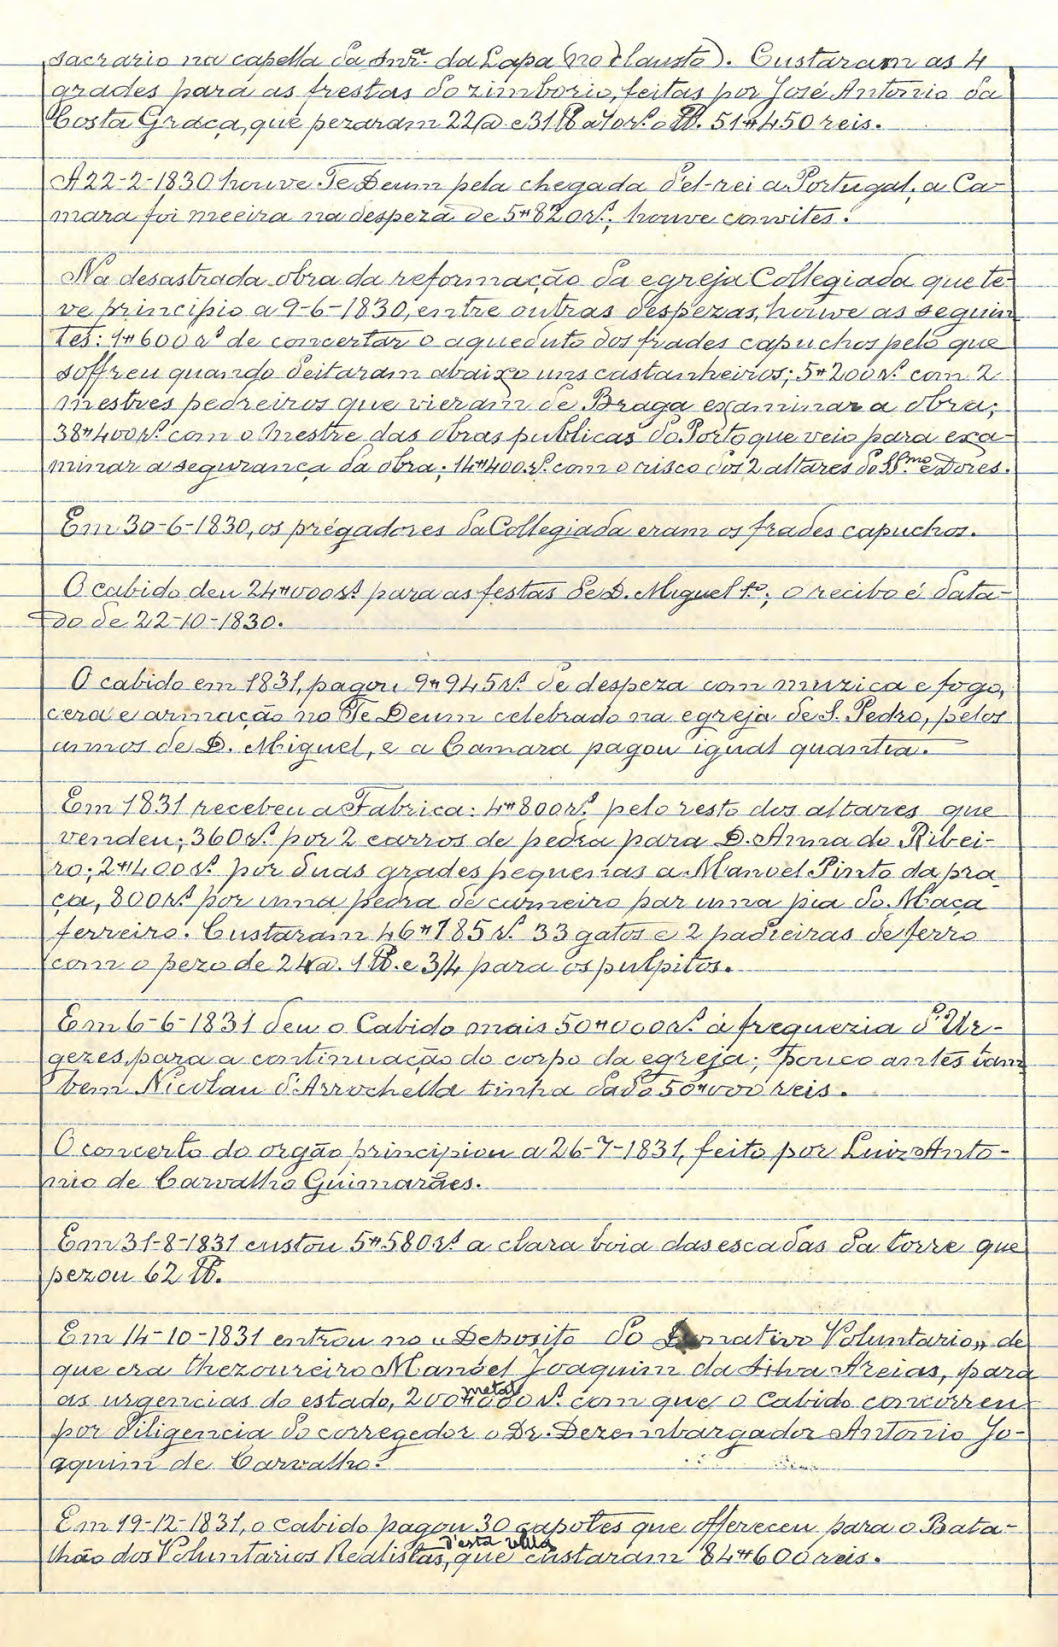 sacrario na capella da Snr.ª da Lapa (no claustro). Custaram as 4
grades para as frestas do zimborio, feitas por José Antonio da
Costa Graça, que pezaram 22@ e 31 ℔ a 70rs. o ℔. 51#450 reis.
A 22-2-1830 houve Te Deum pela chegada d'el-rei a Portugal, a Ca-
mara foi meeira na despeza de 5#820rs.; houve convites.
Na desastrada obra da reformação da egreja Collegiada que te-
ve principio a 9-6-1830, entre outras despezas, houve as seguin
tes: 1#600rs de concertar o aqueduto dos frades capuchos pelo que
soffreu quando deitaram abaixo uns castanheiros; 5#200rs. com 2
mestres pedreiros que vieram de Braga examinar a obra;
38#400rs. com o mestre das obras publicas do Porto que veio para exa-
minar a segurança da obra; 14#400rs. com o risco dos 2 altares do SS.mo e Dores.
Em 30-6-1830, os prégadores da Collegiada eram os frades capuchos.
O cabido deu 24#000rs. para as festas de D. Miguel 1.º; o recibo é data-
do de 22-10-1830.
O cabido em 1831, pagou 9#945rs. de despeza com muzica e fogo,
cera e armação no Te Deum celebrado na egreja de S. Pedro, pelos
annos de D. Miguel, e a Camara pagou igual quantia.
Em 1831 recebeu a Fabrica: 4#800rs. pelo resto dos altares que
vendeu; 360rs. por 2 carros de pedra para D. Anna do Ribei-
ro; 2#400rs. por duas grades pequenas a Manoel Pinto da pra-
ça, 800rs. por uma pedra de carneiro par uma pia do Maça
ferreiro. Custaram 46#185rs. 33 gatos e 2 padieiras de ferro
com o pezo de 24@. 1 ℔. e 3/4 para os pulpitos.
Em 6-6-1831 deu o Cabido mais 50#000rs. á freguezia d'Ur-
gezes, para a continuação do corpo da egreja; pouco antes tam
bem Nicolau d'Arrochella tinha dado 50#000 reis.
O concerto do orgão principiou a 26-7-1831, feito por Luiz Anto-
nio de Carvalho Guimarães.
Em 31-8-1831 custou 5#580rs. a clara boia das escadas da torre que
pezou 62 ℔.
Em 14-10-1831 entrou no „Deposito do Donativo Voluntario„ de
que era thezoureiro Manoel Joaquim da Silva Areias, para
as urgencias do estado, 200#000rs. metal com que o Cabido concorreu
por diligencia do corregedor o Dr. Dezembargador Antonio Jo-
aquim de Carvalho.
Em 19-12-1831, o cabido pagou 30 capotes que offereceu para o Bata-
lhão dos Voluntarios Realistas, d'esta villa que custaram 84#600 reis.